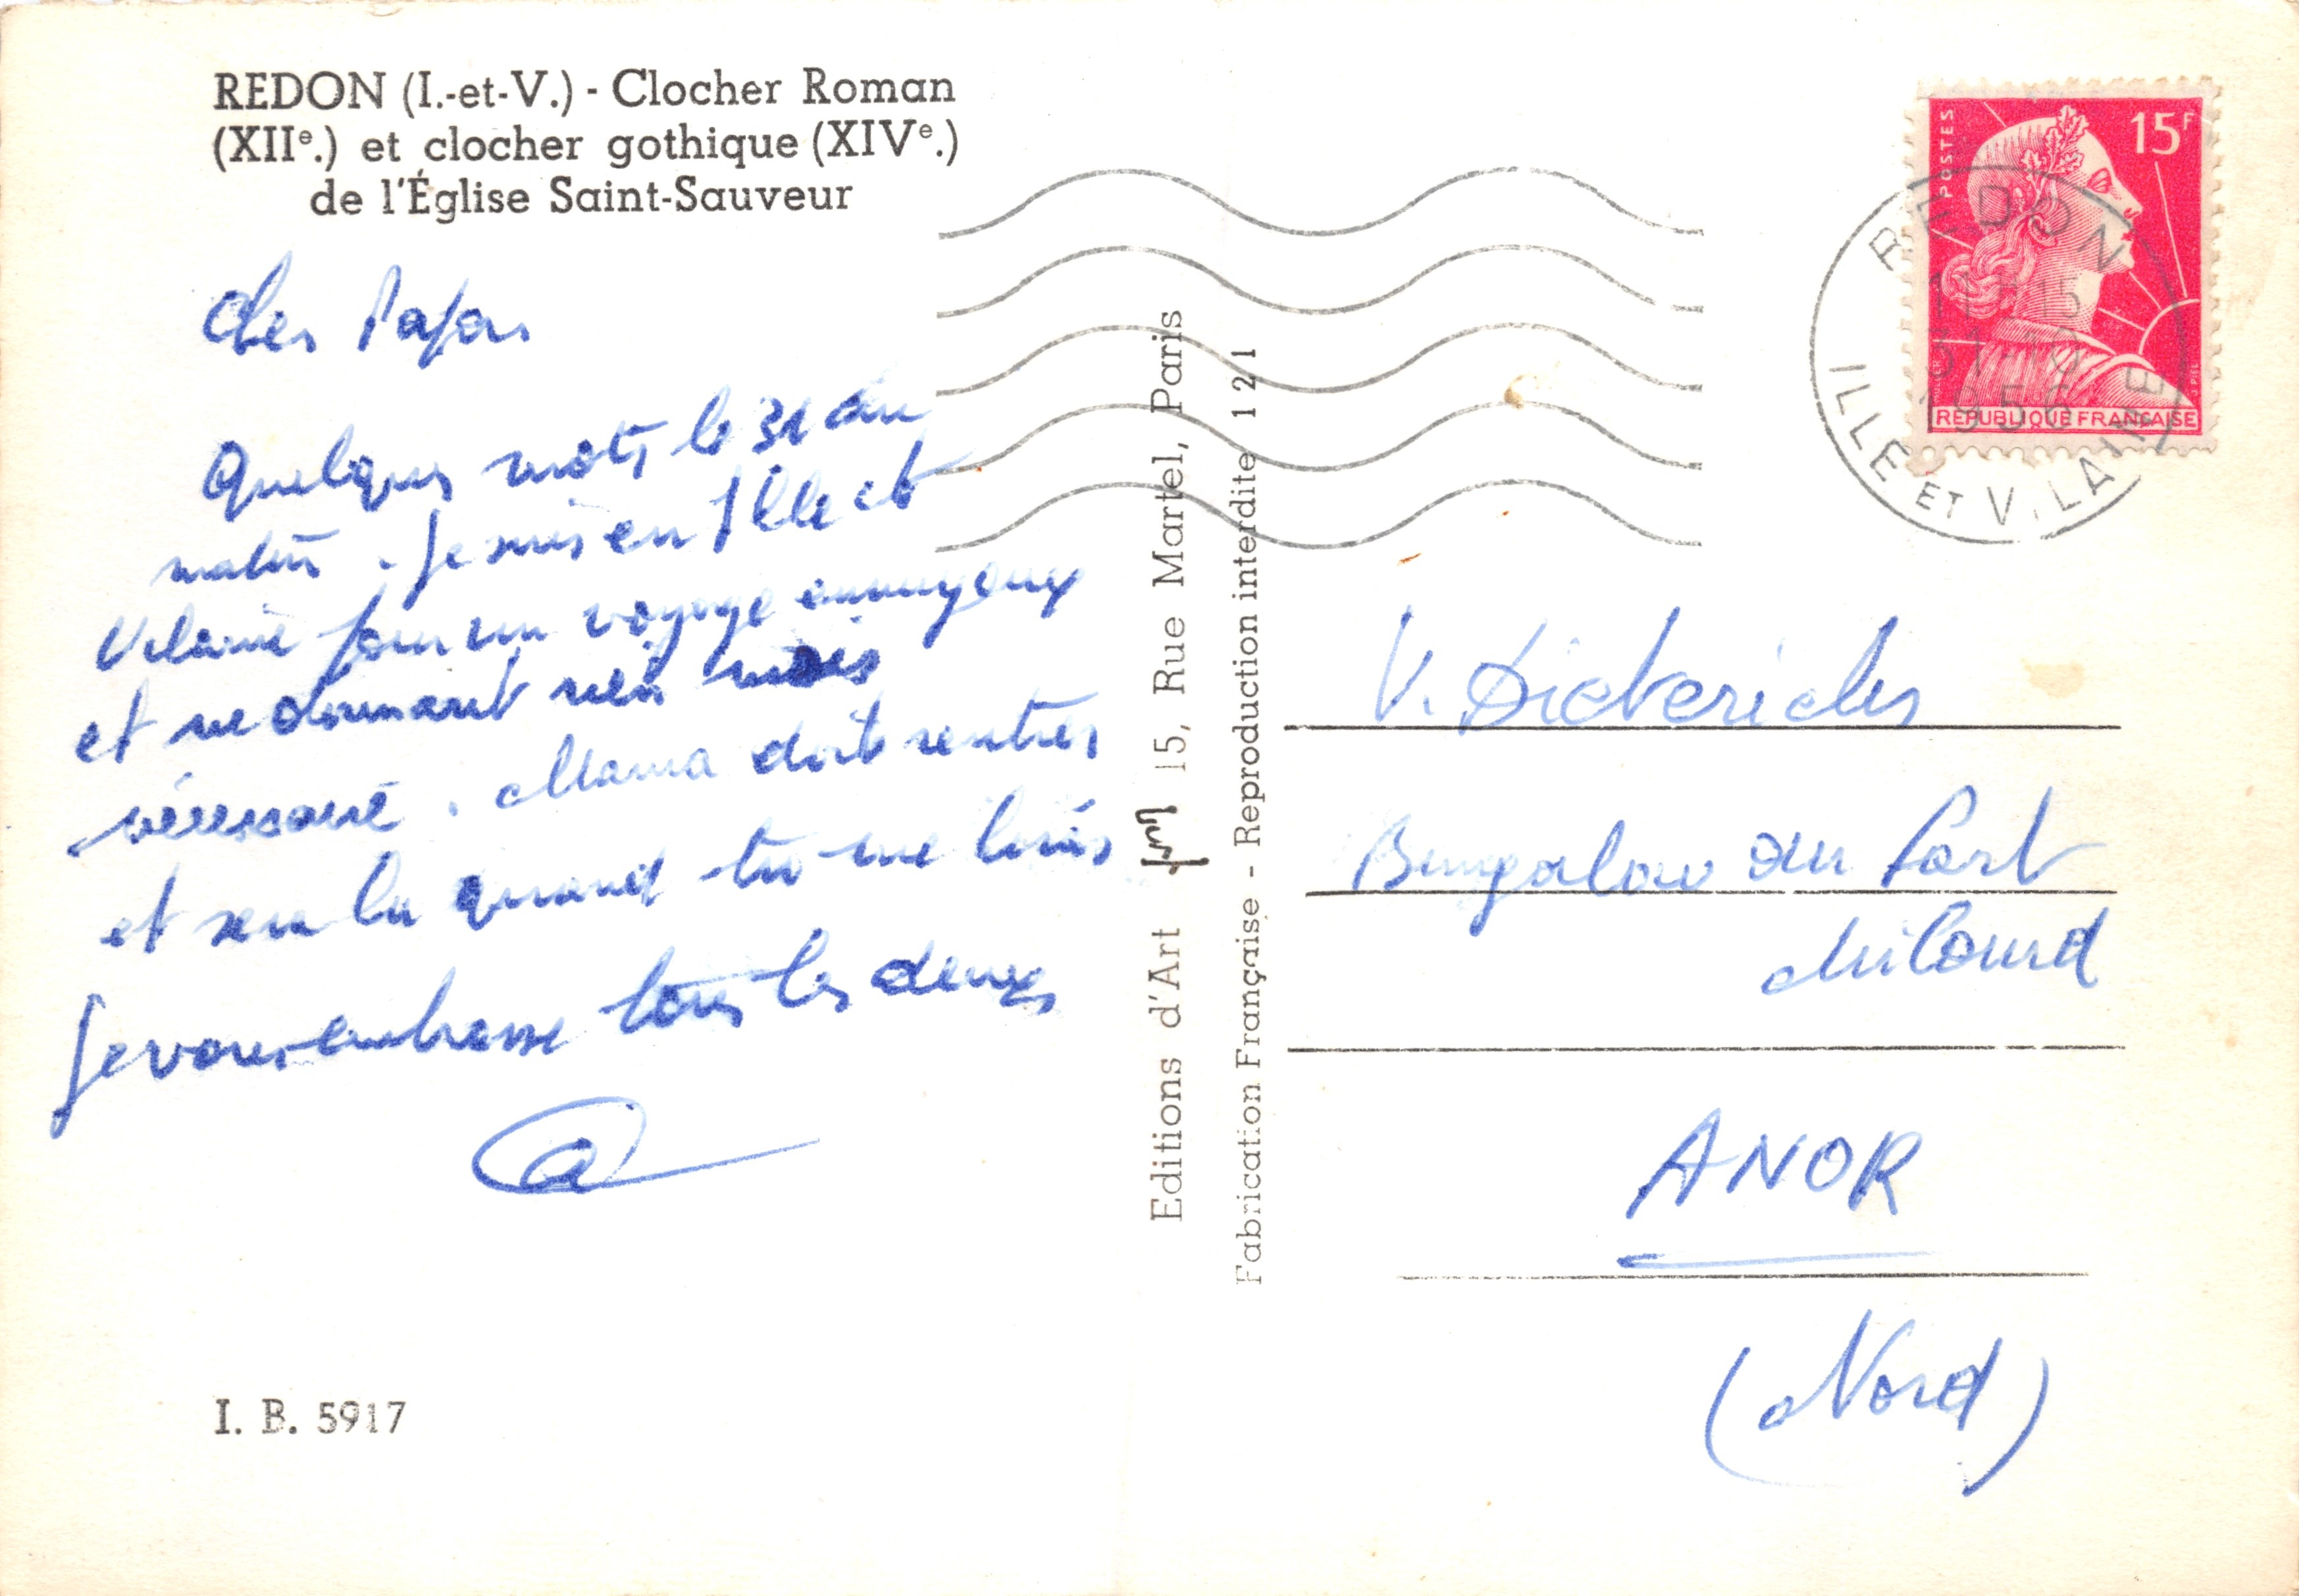 REDON (I.-et-V.) - Clocher Roman
(XIIe.) et clocher gothique (XIVe.)
de l'Église Saint-Sauveur
Cher Papa
Quelques mots le 31 au
matin. Je suis en Ille et
Vilaine pour un voyage ennuyeux
et ne donnant rien mais
nécessaire. Mama doit rentrer
et sera là quand tu me liras
Je vous embrasse tous les deux
I. B. 5917
Editions d'Art 15, Rue Martel, Paris
Fabrication Française - Reproduction interdite 121
POSTES
15F
REPUBLIQUE FRANÇAISE
REDON
11-15
31-10
1956
ILLE ET VILAINE
V. Dieterichs
Bungalow au Port
Milourd
ANOR
(Nord)